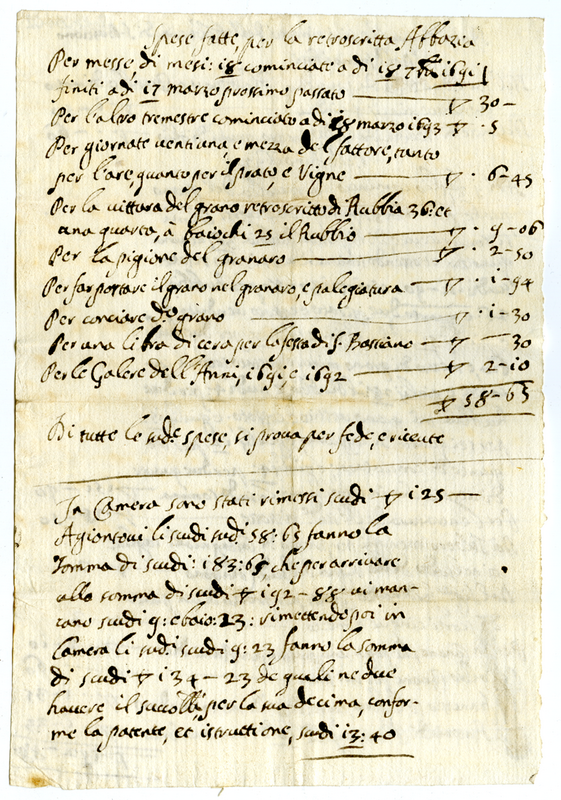 Spese fatte, per la retroscritta Abbazia
Per messe, di mesi: 18 cominciate a di 18 7bre 1691
finiti a di 17 marzo prossimo passato — ▽ 30 —
Per l'altro tremestre cominciato a di 18 marzo 1693 ▽ . 5
Per giornate ventiuna, e mezza del fattore, tanto
per l'are, quanto per il prato, e Vigne — ▽ . 6-45
Per la vittura del grano retroscritto di Rubbia 36: et
una quarta, à baiochi 25 il Rubbio — ▽ . 9-06
Per la pigione del granaro — ▽ . 2-50
Per far portare il grano nel granaro, e palegiatura — ▽ . 1-94
Per conciare do. grano — ▽ . 1-30
Per una libra di cera per la festa di S. Bassiano — ▽ 30
Per le Galere dell'Anni, 1691, e 1692 — ▽ 2-10
▽ 58-65
Di tutte le sude. spese, si prova per fede, e ricevte
In Camera sono stati rimessi scudi ▽ 125 —
Agiontovi li scudi sudi 58:65 fanno la
somma di scudi: 183:65, che per arrivare
alla somma di scudi ▽ 192-88 vi man-
cano scudi 9: e baio: 23: rimettendo poi in
Camera li sudi scudi 9:23 fanno la somma
di scudi ▽ 134-23 de quali ne due
havere il succoll. per la sua decima, confor-
me la patente, et istruttione, scudi 13:40